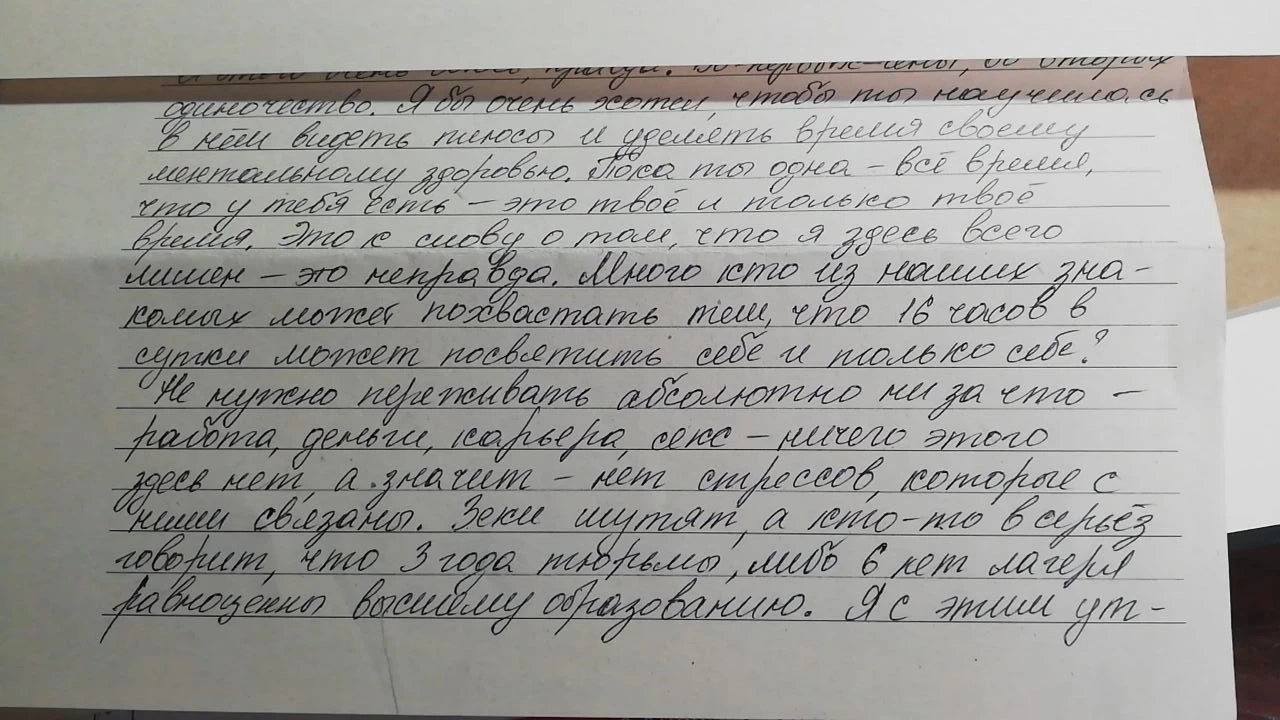 одиночество. Я бы очень хотел, чтобы ты научилась
в нём видеть плюсы и уделять время своему
ментальному здоровью. Пока ты одна – всё время,
что у тебя есть – это твоё и только твоё
время. Это к слову о том, что я здесь всего
лишен – это неправда. Много кто из наших зна-
комых может похвастать тем, что 16 часов в
сутки может посвятить себе и только себе?
Не нужно переживать абсолютно ни за что –
работа, деньги, карьера, секс – ничего этого
здесь нет, а значит – нет стрессов, которые с
ними связаны. Зеки шутят, а кто-то всерьёз
говорит, что 3 года тюрьмы, либо 6 лет лагеря
равноценны высшему образованию. Я с этим ут-